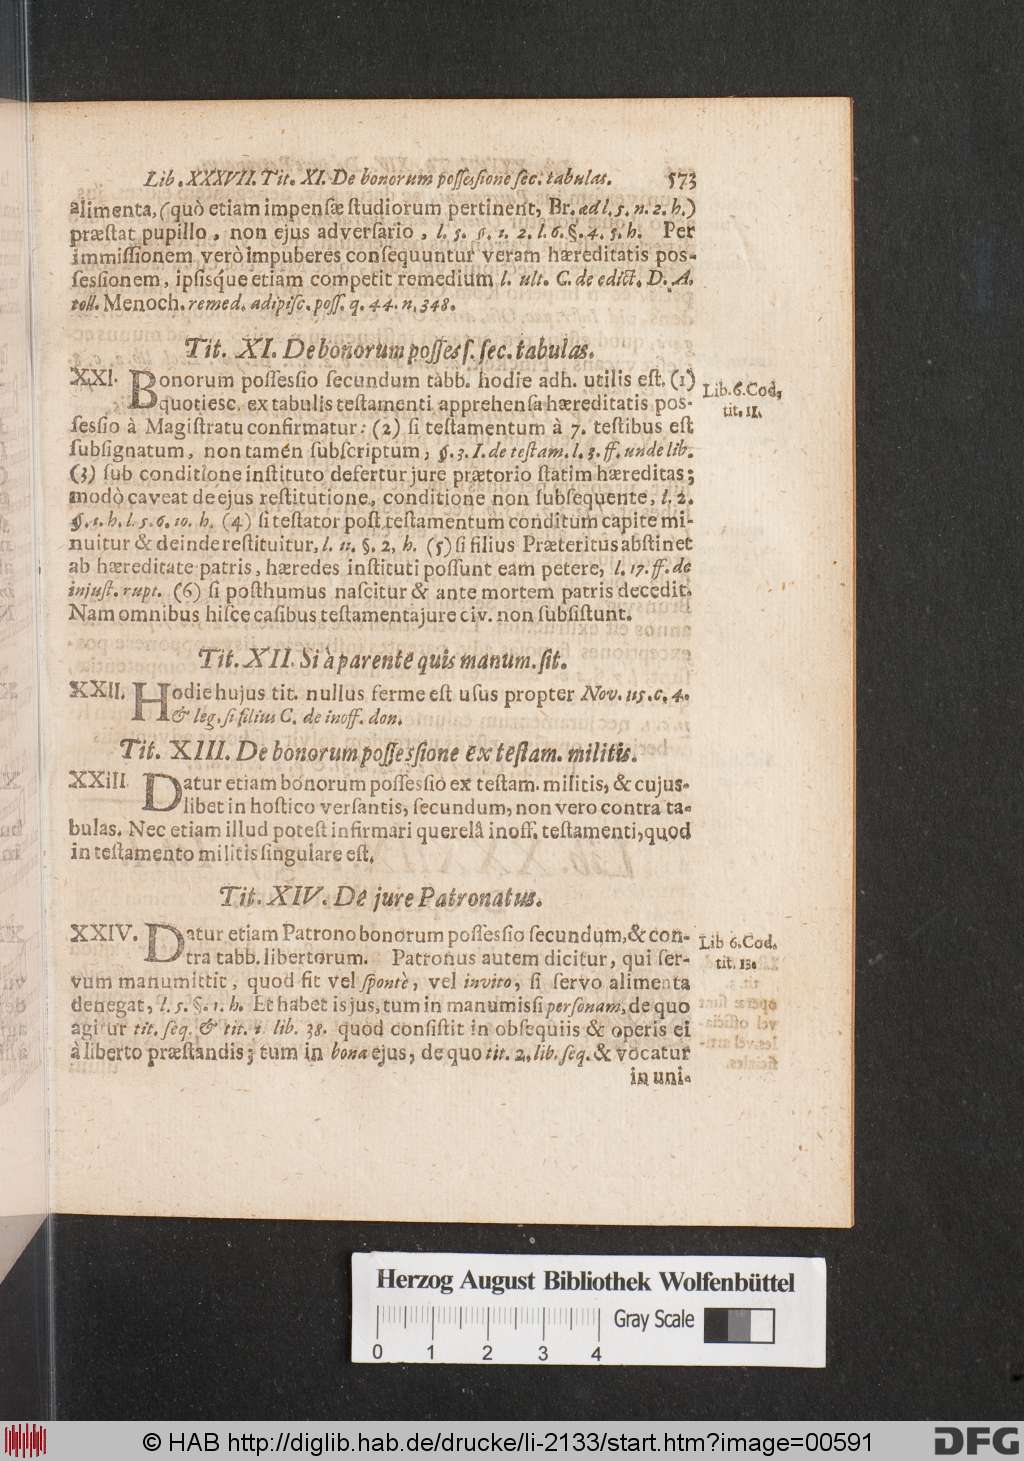 Lib. XXXVII. Tit. XI. De bonorum possessione sec. tabulas. 573
alimenta, (quò etiam impensæ studiorum pertinent, Br. ad l. 5. n. 2. h.)
præstat pupillo, non ejus adversario, l. 5. §. 1. 2. l. 6. §. 4. 5. h. Per
immissionem verò impuberes consequuntur veram hæreditatis pos-
sessionem, ipsisq́ue etiam competit remedium l. ult. C. de edict. D. A.
toll. Menoch. remed. adipisc. poss. q. 44. n. 348.
Tit. XI. De bonorum possess. sec. tabulas.
XXI. Bonorum possessio secundum tabb. hodie adh. utilis est, (1) Lib. 6. Cod,
quotiesc. ex tabulis testamenti apprehensa hæreditatis pos- tit. II.
sessio à Magistratu confirmatur: (2) si testamentum à 7. testibus est
subsignatum, non tamén subscriptum, §. 3. I. de testam. l. 3. ff. unde lib.
(3) sub conditione instituto defertur jure prætorio statim hæreditas;
modò caveat de ejus restitutione, conditione non subsequente, l. 2.
§. 1. h. l. 5. 6. 10. h. (4) si testator post testamentum conditum capite mi-
nuitur & deinde restituitur, l. 11. §. 2, h. (5) si filius Præteritus abstinet
ab hæreditate patris, hæredes instituti possunt eam petere, l. 17. ff. de
injust. rupt. (6) si posthumus nascitur & ante mortem patris decedit.
Nam omnibus hisce casibus testamenta jure civ. non subsistunt.
Tit. XII. Si à parente quis manum. sit.
XXII. Hodie hujus tit. nullus ferme est usus propter Nov. 115. c. 4.
& leg. si filius C. de inoff. don.
Tit. XIII. De bonorum possessione ex testam. militis.
XXIII. Datur etiam bonorum possessio ex testam. militis, & cujus-
libet in hostico versantis, secundum, non vero contra ta-
bulas. Nec etiam illud potest infirmari querelâ inoff. testamenti, quod
in testamento militis singulare est.
Tit. XIV. De jure Patronatus.
XXIV. Datur etiam Patrono bonorum possessio secundum, & con- Lib 6. Cod.
tra tabb. libertorum. Patronus autem dicitur, qui ser- tit. 13.
vum manumittit, quod fit vel spontè, vel invito, si servo alimenta
denegat, l. 5. §. 1. h. Et habet is jus, tum in manumissi personam, de quo
agitur tit. seq. & tit. 1. lib. 38. quod consistit in obsequiis & operis ei
à liberto præstandis; tum in bona ejus, de quo tit. 2, lib. seq. & vocatur
in uni-
Herzog August Bibliothek Wolfenbüttel
Gray Scale
0 1 2 3 4
© HAB http://diglib.hab.de/drucke/li-2133/start.htm?image=00591
DFG